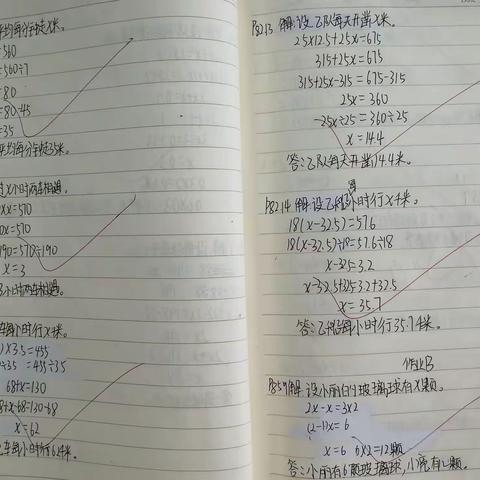 均每分钟走x米。
=560
=560÷7
=80
=80-45
=35
平均每分钟走35米。
x小时两车相遇。
x=570
0x=570
190=570÷190
x=3
3小时两车相遇。
车每小时行x千米。
)×3.5=455
÷3.5=455÷3.5
68+x=130
8+x-68=130-68
x=62
车每小时行62千米。
P82 13. 解:设乙队每天开凿x米。
25×12.6+25x=675
315+25x=675
315+25x-315=675-315
25x=360
25x÷25=360÷25
x=14.4
答:乙队每天开凿14.4米。
P82 14. 解:设乙船每小时行x千米。
18(x-32.5)=57.6
18(x-32.5)÷18=57.6÷18
x-32.5=3.2
x-32.5+32.5=3.2+32.5
x=35.7
答:乙船每小时行35.7千米。
作业B
解:设小丽有x颗玻璃球
2x-x=3×2
(2-1)x=6
x=6 6×2=12颗
答:小丽有6颗玻璃球,小亮有12颗。